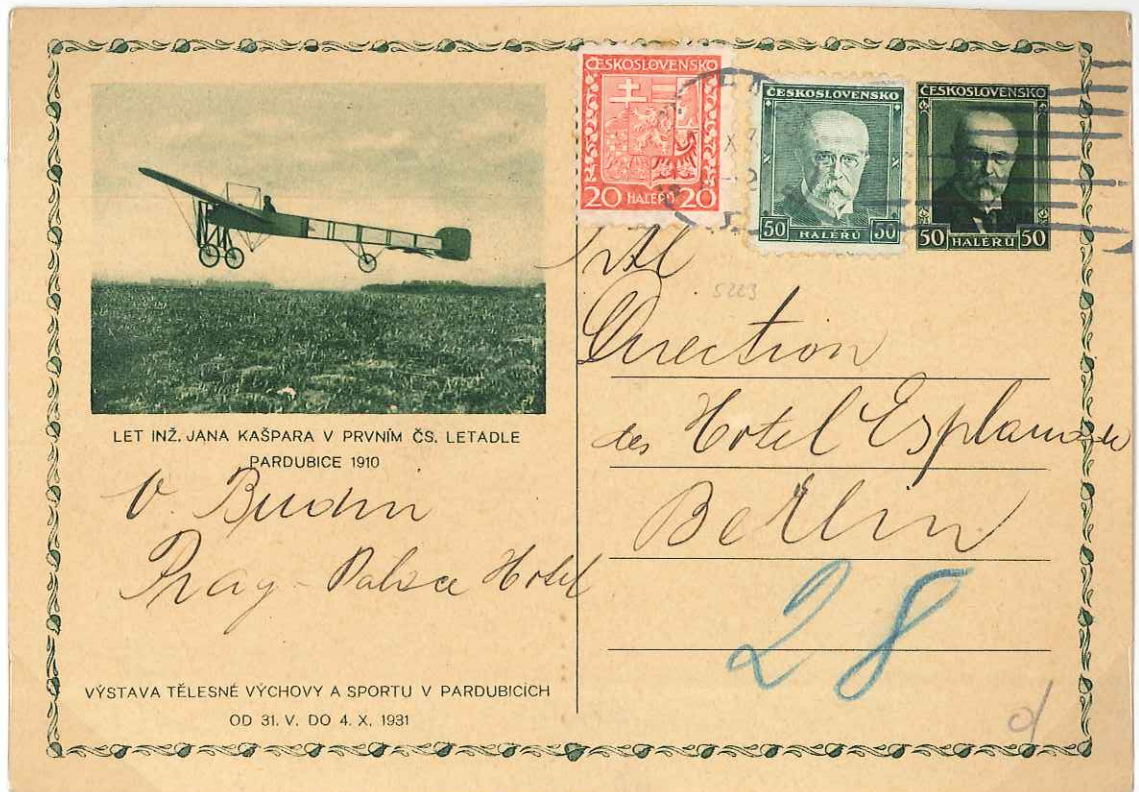 ČESKOSLOVENSKO
20 HALÉŘŮ 20
ČESKOSLOVENSKO
50 HALÉŘŮ 50
ČESKOSLOVENSKO
50 HALÉŘŮ 50
LET INŽ. JANA KAŠPARA V PRVNÍM ČS. LETADLE
PARDUBICE 1910
Prag - Palace Hotel
VÝSTAVA TĚLESNÉ VÝCHOVY A SPORTU V PARDUBICÍCH
OD 31. V. DO 4. X. 1931
5223
Direction
des Hotel Esplanade
Berlin
28